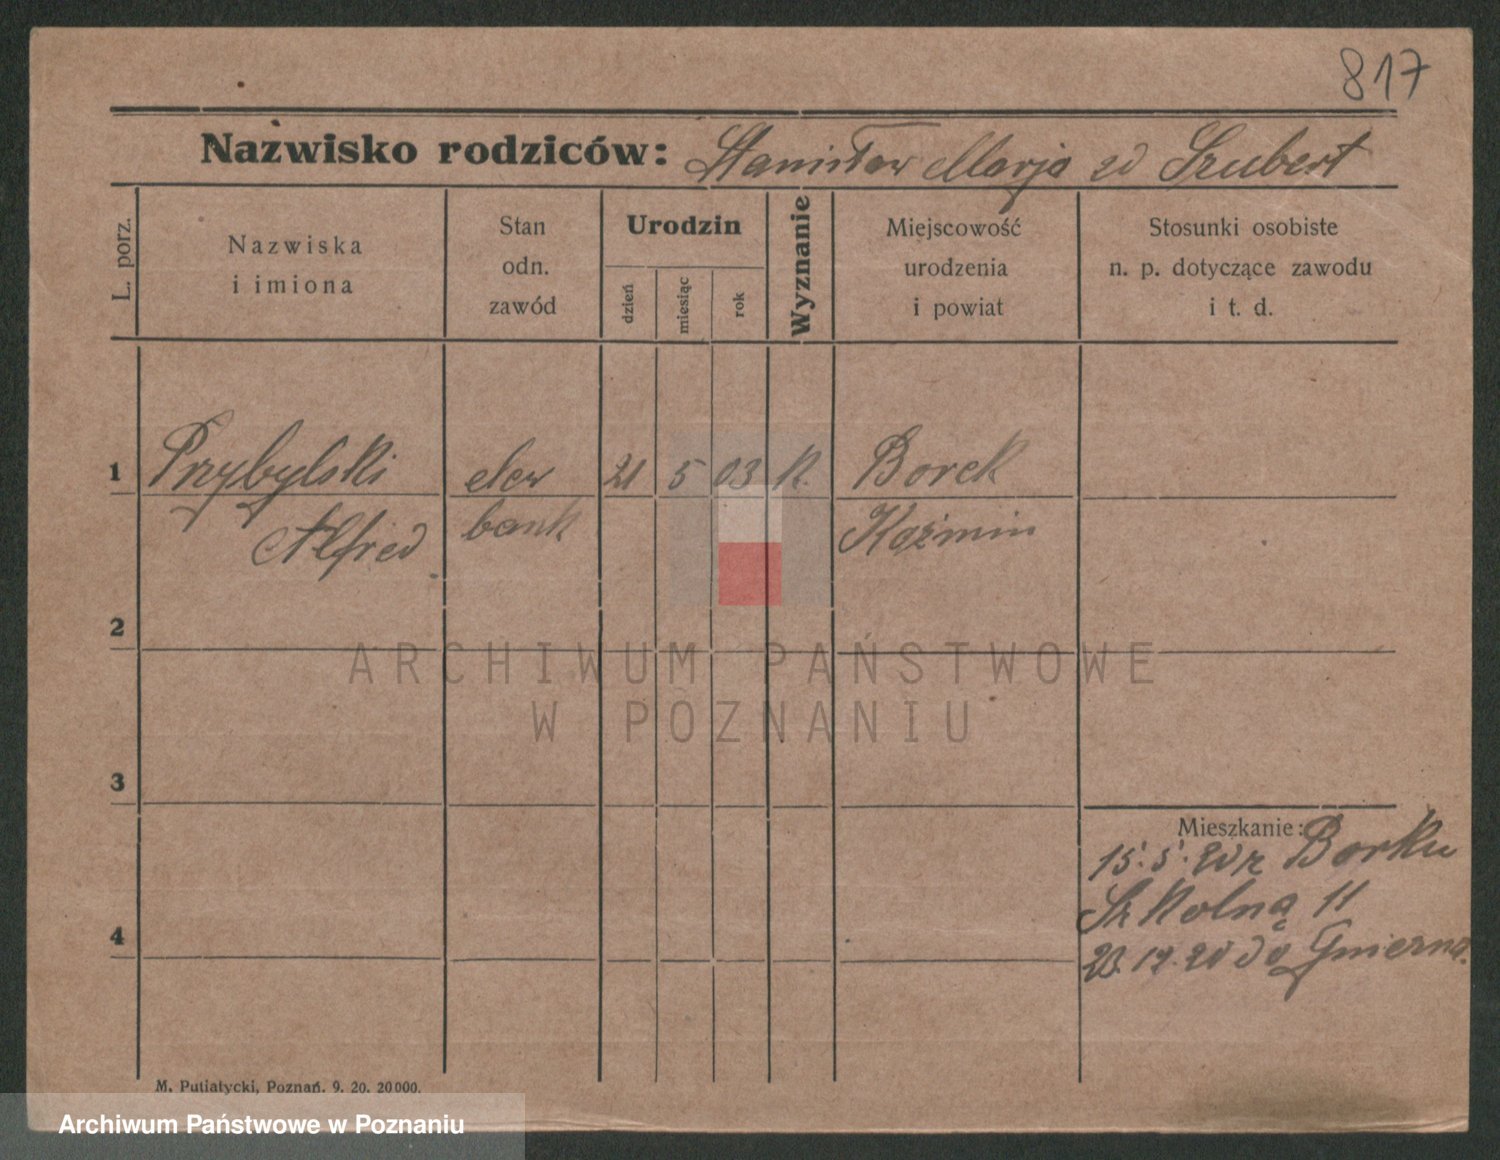 817
Nazwisko rodziców: Stanisław Marja zd Szubert
L. porz.
Nazwiska
i imiona
Stan
odn.
zawód
Urodzin
dzień
miesiąc
rok
Wyznanie
Miejscowość
urodzenia
i powiat
Stosunki osobiste
n. p. dotyczące zawodu
i t. d.
1 Przybylski elew 21 5 03 k. Borek
Alfred bank Kaźmin
2
ARCHIWUM PAŃSTWOWE
W POZNANIU
3
Mieszkanie:
15. 5. 20 z Borku
Szkolną 11
4
20 do Gnierna.
M. Putiatycki, Poznań. 9. 20. 20000.
Archiwum Państwowe w Poznaniu